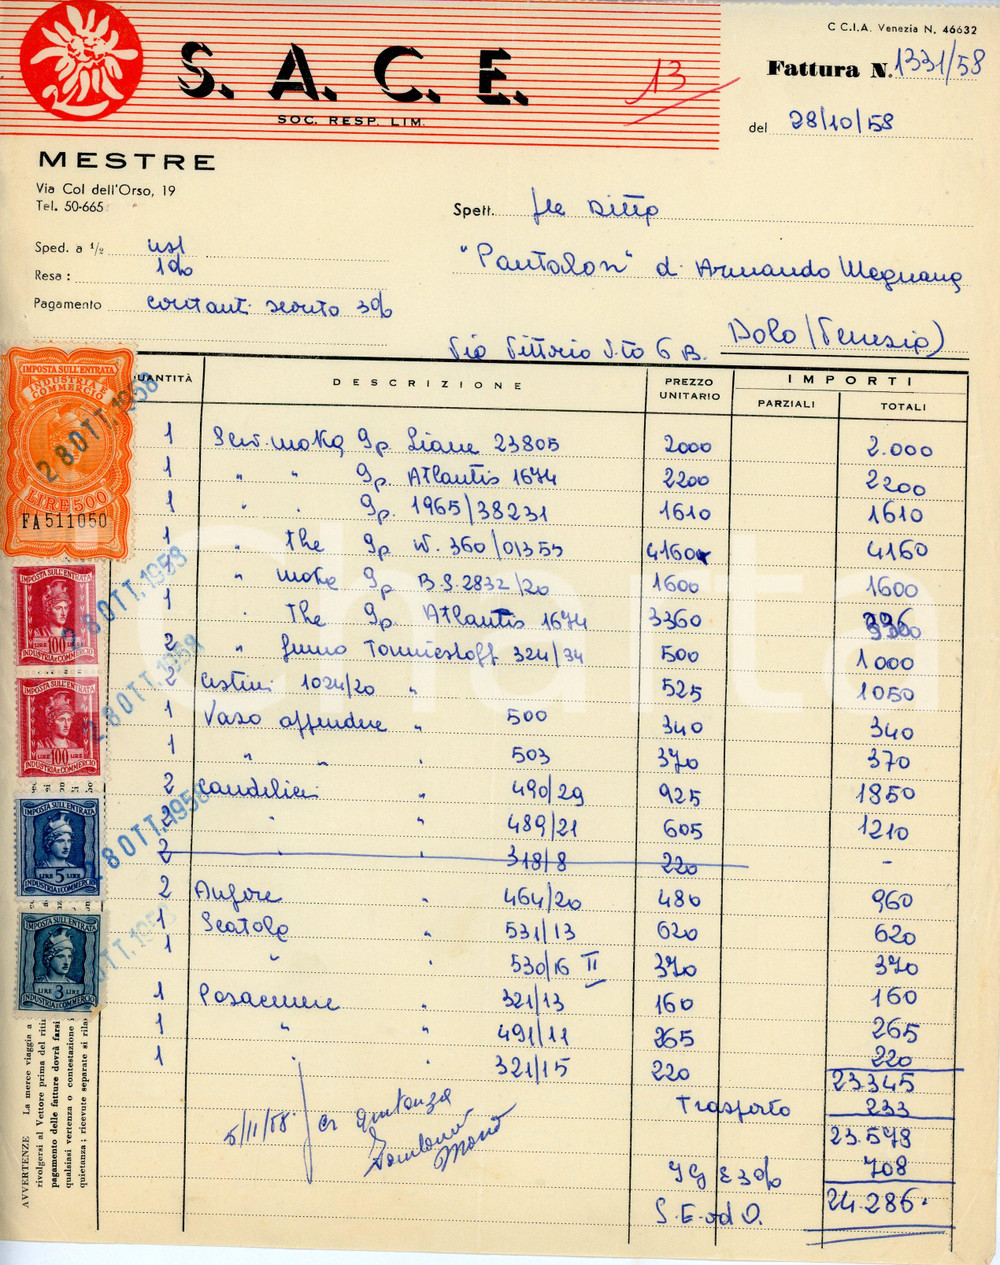 C C.I.A. Venezia N. 46632
S. A. C. E.
SOC. RESP. LIM.
13
Fattura N. 1331/58
del 28/10/58
MESTRE
Via Col dell'Orso, 19
Tel. 50-665
Spett. Ditta
Sped. a ½
Resa :
"Pantalon" d. Armando
Pagamento contanti sconto 3%
Dolo (Venezia)
Via Vittorio V.to 6 B.
QUANTITÀ DESCRIZIONE PREZZO UNITARIO IMPORTI
PARZIALI TOTALI
1 Serv. moka Gp Liane 23805 2000 2.000
1 " " Gp. Atlantis 1674 2200 2200
1 " " Gp. 1965/38231 1610 1610
1 " the Gp W. 360/01355 4160 4160
1 " moka Gp B S. 2832/20 1600 1600
1 " the Gp Atlantis 1674 3360
2 " 324/34 500 1000
2 Cestini 1024/20 " 525 1050
1 Vaso appendere " 500 340 340
1 " " " 503 370 370
2 Candelieri " 490/29 925 1850
2 " " 489/21 605 1210
2 " " 318/8 220 -
2 Anfore " 464/20 480 960
1 Scatola " 531/13 620 620
1 " " 530/16 II 370 370
1 Posacenere " 321/13 160 160
1 " " 491/11 265 265
1 " " 321/15 220 220
23345
Trasporto 233
23.578
IG E 3% 708
S. E. od O. 24.286.
5/11/58 per quietanza
IMPOSTA SULL'ENTRATA
INDUSTRIA E COMMERCIO
LIRE 500
FA 511050
28 OTT. 1958
IMPOSTA SULL'ENTRATA
LIRE 100 LIRE
INDUSTRIA E COMMERCIO
28 OTT. 1958
IMPOSTA SULL'ENTRATA
LIRE 100 LIRE
INDUSTRIA E COMMERCIO
28 OTT. 1958
IMPOSTA SULL'ENTRATA
LIRE 5 LIRE
INDUSTRIA E COMMERCIO
28 OTT. 1958
IMPOSTA SULL'ENTRATA
LIRE 3 LIRE
INDUSTRIA E COMMERCIO
OTT. 1958
AVVERTENZE La merce viaggia a
rivolgersi al Vettore prima del riti
pagamento delle fatture dovrà farsi
qualsiasi vertenza o contestazione
quietanza ; ricevute separate si rila
Charta